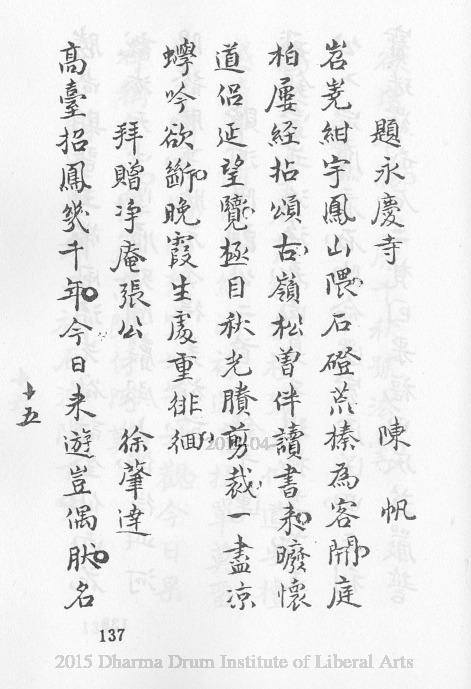 題永慶寺 陳帆
岧嶤紺宇鳳山隈石磴荒榛為客開庭
柏屢經拈頌古嶺松曽伴讀書來曠懐
道侶延望覽極目秋光賸剪裁一盡凉
蟬吟欲斷晚霞生處重徘徊
拜贈净庵張公 徐肇逹
高臺招鳳幾千年今日来遊豈偶肰名
十五
137
2015 Dharma Drum Institute of Liberal Arts